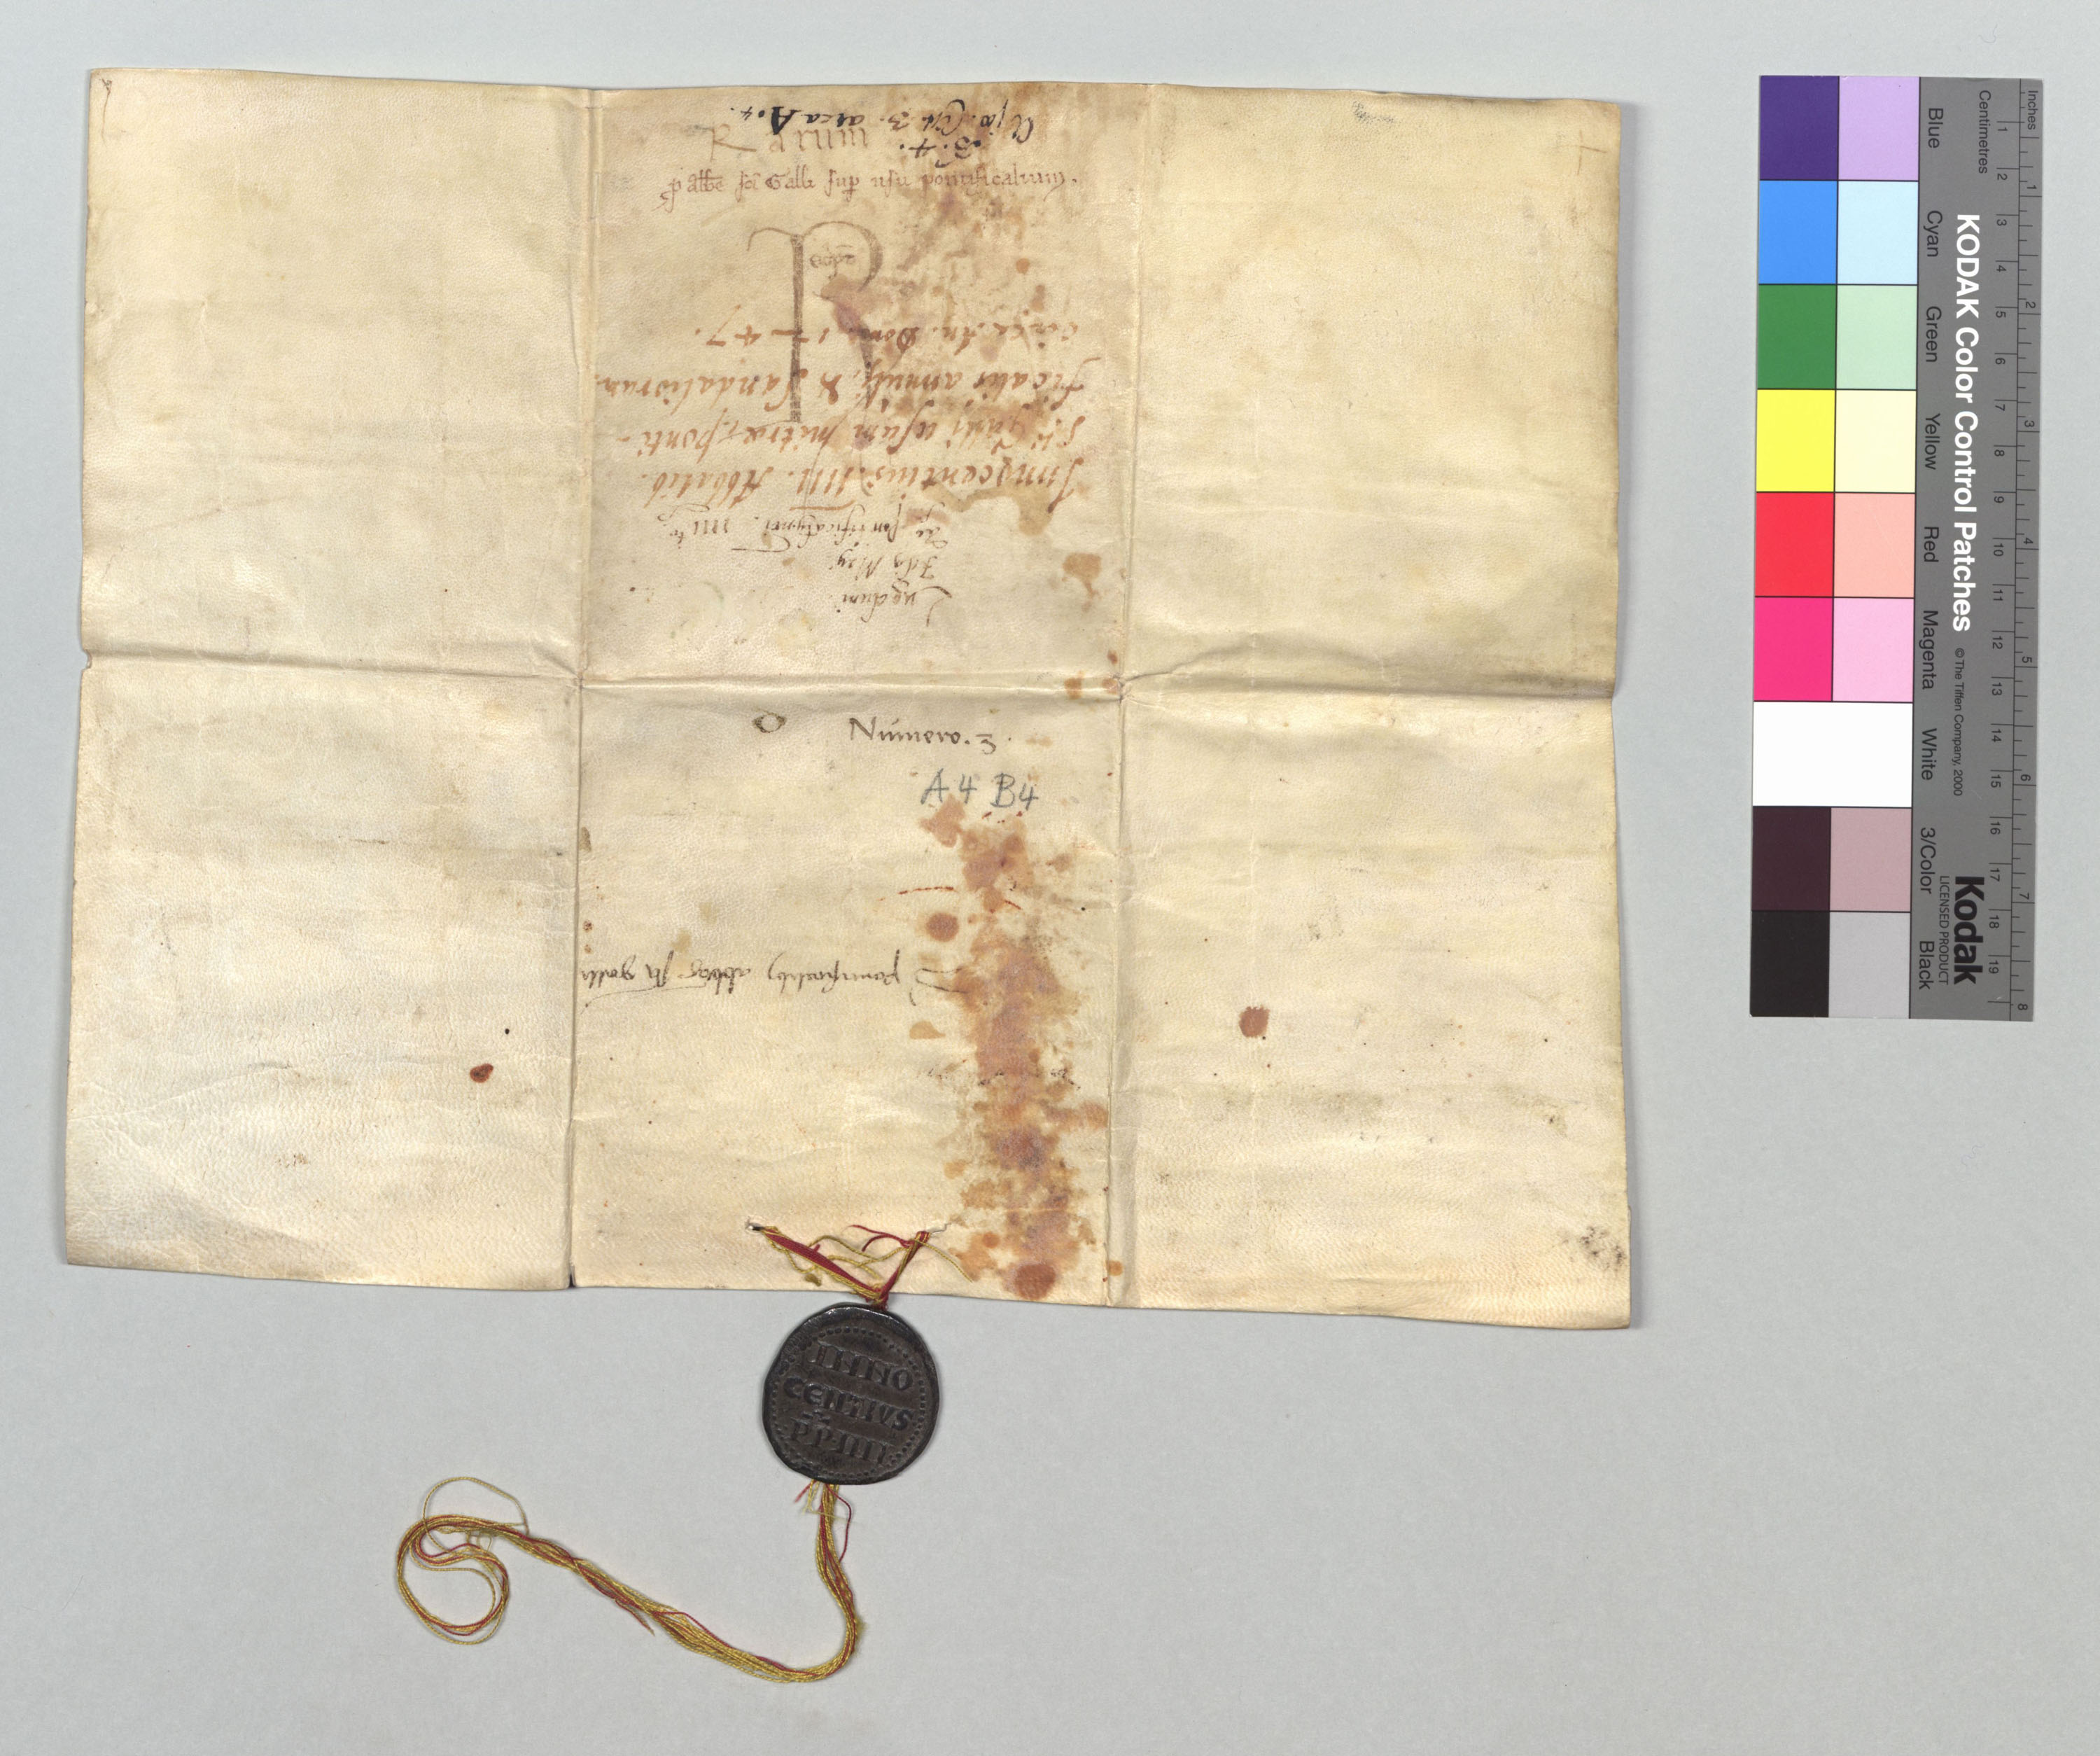 Rarum
p albe sci Galli sup usu pontificalium.
Rescript
A jo. Cist. 3. arca A. 4.
B. 4.
Innocentius. IIII. Abbatib.
S. Galli usum mitrae, ponti-
ficalis annuli, & Sandaliorum
circa An. Dom. 1247.
Lugduni
Idiq May
Numero. 3.
A4 B4
pontificalib abbas sti galli
INNO
CENTIVS
PP IIII
KODAK Color Control Patches
© The Tiffen Company, 2000
Kodak
LICENSED PRODUCT
Inches
1 2 3 4 5 6 7 8
Centimetres
1 2 3 4 5 6 7 8 9 10 11 12 13 14 15 16 17 18 19
Blue
Cyan
Green
Yellow
Red
Magenta
White
3/Color
Black